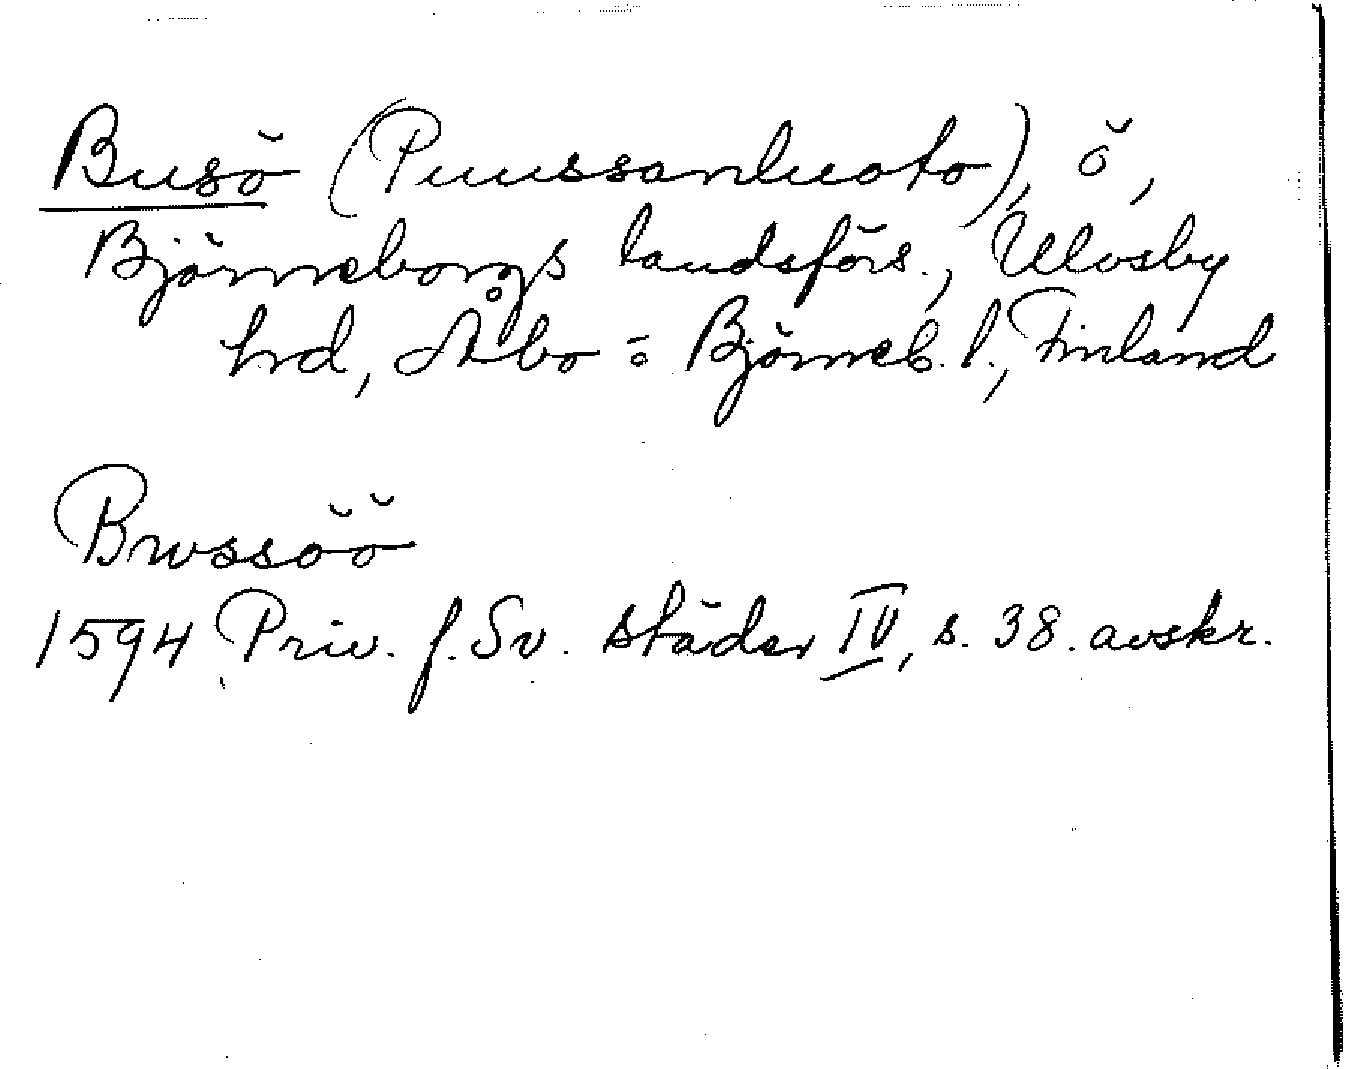 Busö (Puussanluoto), ö,
Björneborgs landsförs., Ulvsby
hrd, Åbo = Björneb. l., Finland
Bwssöö
1594 Priv. f. Sv. städer IV, s. 38. avskr.